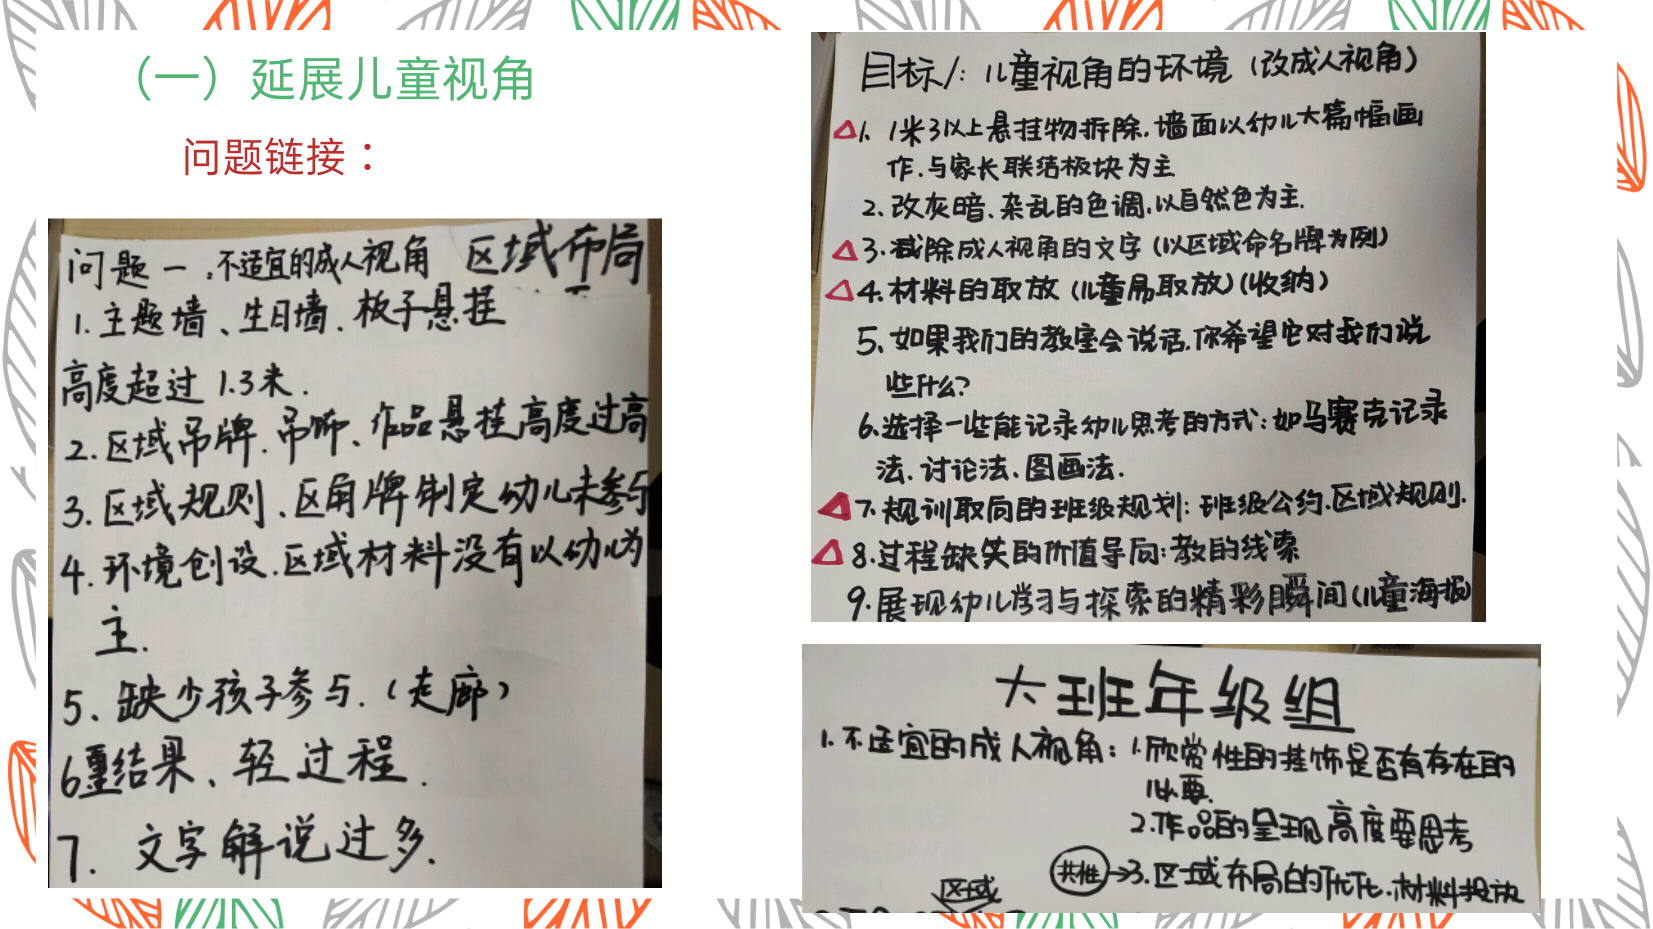 （一）延展儿童视角
问题链接：
问题一、不适宜的成人视角 区域布局
1. 主题墙、生日墙、板子悬挂
高度超过 1.3米.
2. 区域吊牌.吊饰、作品悬挂高度过高
3. 区域规则、区角牌制定幼儿未参与
4. 环境创设.区域材料没有以幼儿为
主.
5、缺少孩子参与.（走廊）
6重结果、轻过程.
7. 文字解说过多.
目标1: 儿童视角的环境（改成人视角）
△1. 1米3以上悬挂物拆除.墙面以幼儿大篇幅画
作.与家长联结板块为主
2.改灰暗、杂乱的色调.以自然色为主.
△3.减除成人视角的文字（以区域命名牌为例）
△4.材料的取放（儿童易取放）（收纳）
5、如果我们的教室会说话.你希望它对我们说
些什么?
6.选择一些能记录幼儿思考的方式:如马赛克记录
法、讨论法、图画法.
△7.规训取向的班级规划: 班级公约.区域规则.
△8.过程缺失的价值导向:教的线索
9.展现幼儿学习与探索的精彩瞬间（儿童海报）
大班年级组
1.不适宜的成人视角: 1.欣赏性的挂饰是否有存在的
必要.
2.作品的呈现高度要思考
共性→3.区域布局的优化.材料投放
区域